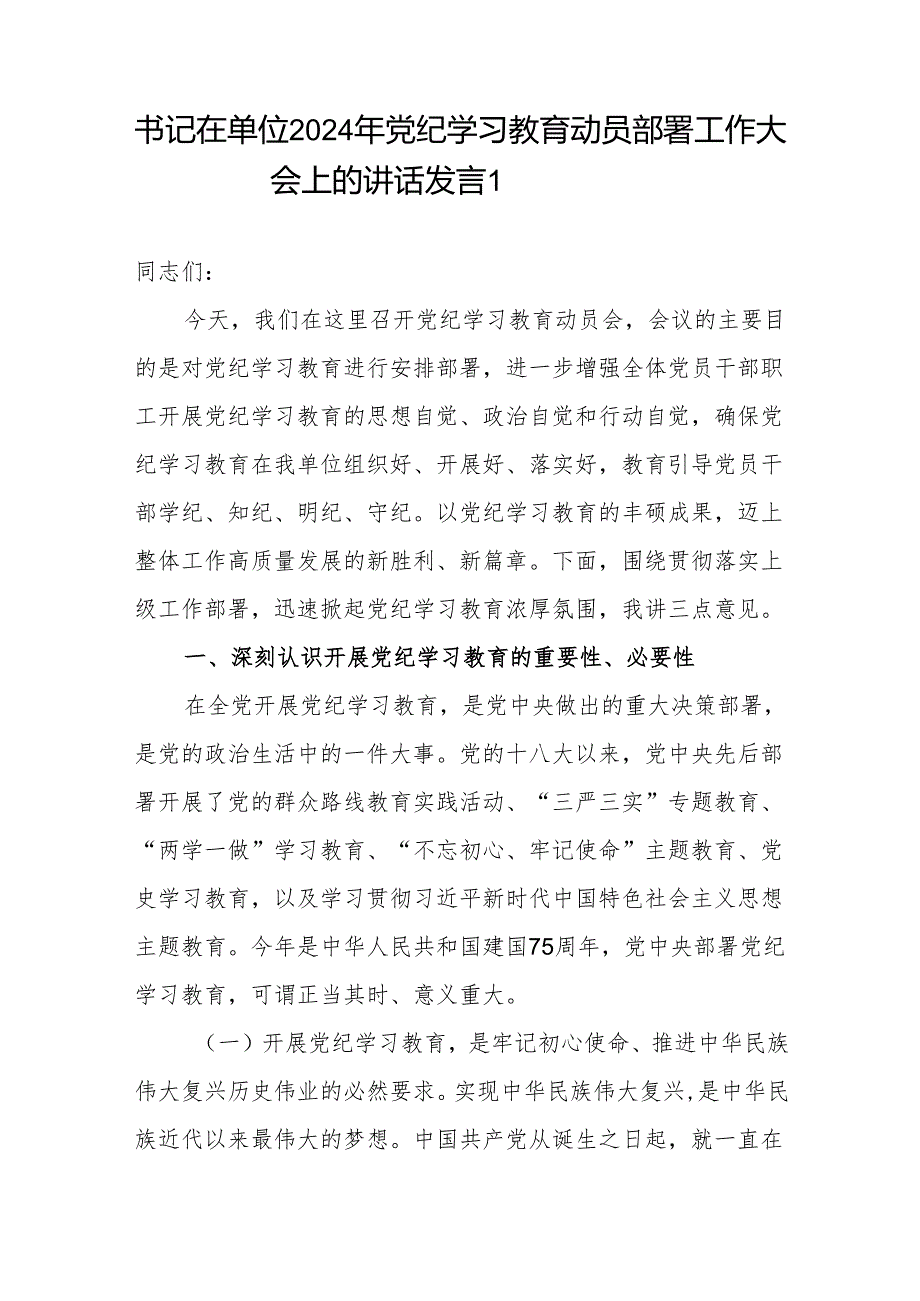 书记在单位2024年党纪学习教育动员部署工作大
会上的讲话发言1
同志们：
今天，我们在这里召开党纪学习教育动员会，会议的主要目
的是对党纪学习教育进行安排部署，进一步增强全体党员干部职
工开展党纪学习教育的思想自觉、政治自觉和行动自觉，确保党
纪学习教育在我单位组织好、开展好、落实好，教育引导党员干
部学纪、知纪、明纪、守纪。以党纪学习教育的丰硕成果，迈上
整体工作高质量发展的新胜利、新篇章。下面，围绕贯彻落实上
级工作部署，迅速掀起党纪学习教育浓厚氛围，我讲三点意见。
一、深刻认识开展党纪学习教育的重要性、必要性
在全党开展党纪学习教育，是党中央做出的重大决策部署，
是党的政治生活中的一件大事。党的十八大以来，党中央先后部
署开展了党的群众路线教育实践活动、“三严三实”专题教育、
“两学一做”学习教育、“不忘初心、牢记使命”主题教育、党
史学习教育，以及学习贯彻习近平新时代中国特色社会主义思想
主题教育。今年是中华人民共和国建国75周年，党中央部署党纪
学习教育，可谓正当其时、意义重大。
（一）开展党纪学习教育，是牢记初心使命、推进中华民族
伟大复兴历史伟业的必然要求。实现中华民族伟大复兴，是中华民
族近代以来最伟大的梦想。中国共产党从诞生之日起，就一直在